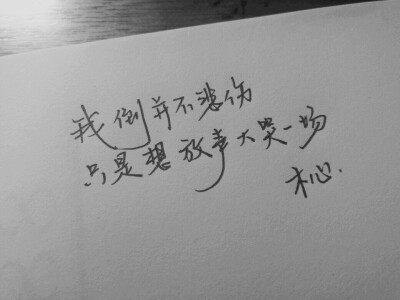 我倒并不悲伤
只是想放声大哭一场
木心.